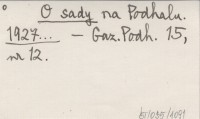 O sady na Podhalu.
1927... - Gaz. Podh. 15,
nr 12.